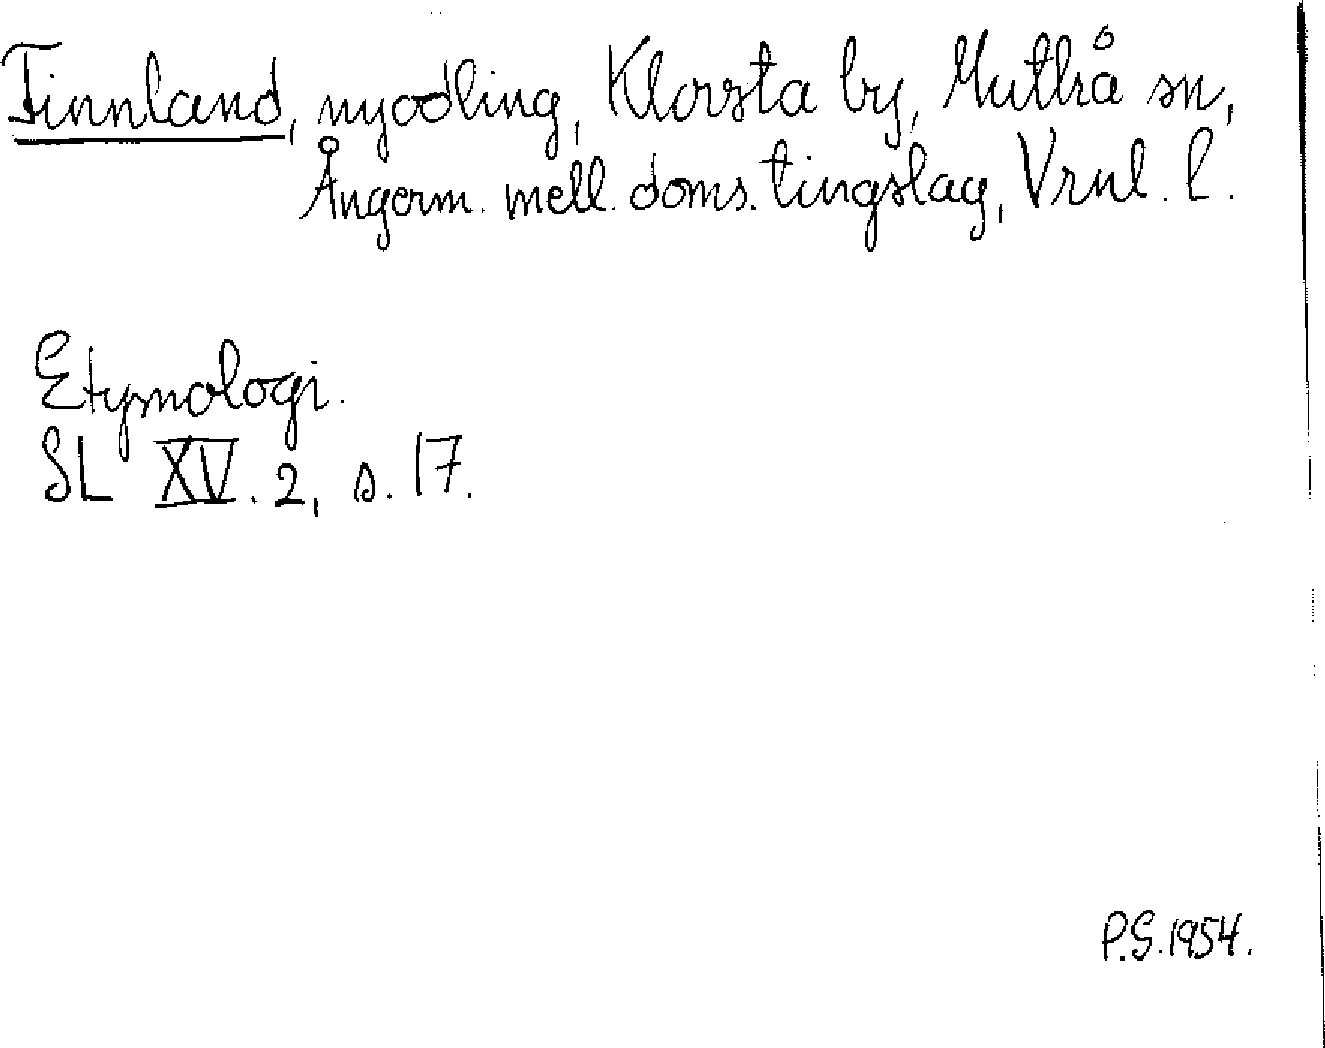 Finnland, nyodling, Klovsta by, Multrå sn,
Ångerm. mell. doms. tingslag, Vrnl. l.
Etymologi.
SL XV. 2, s. 17.
P.G. 1954.